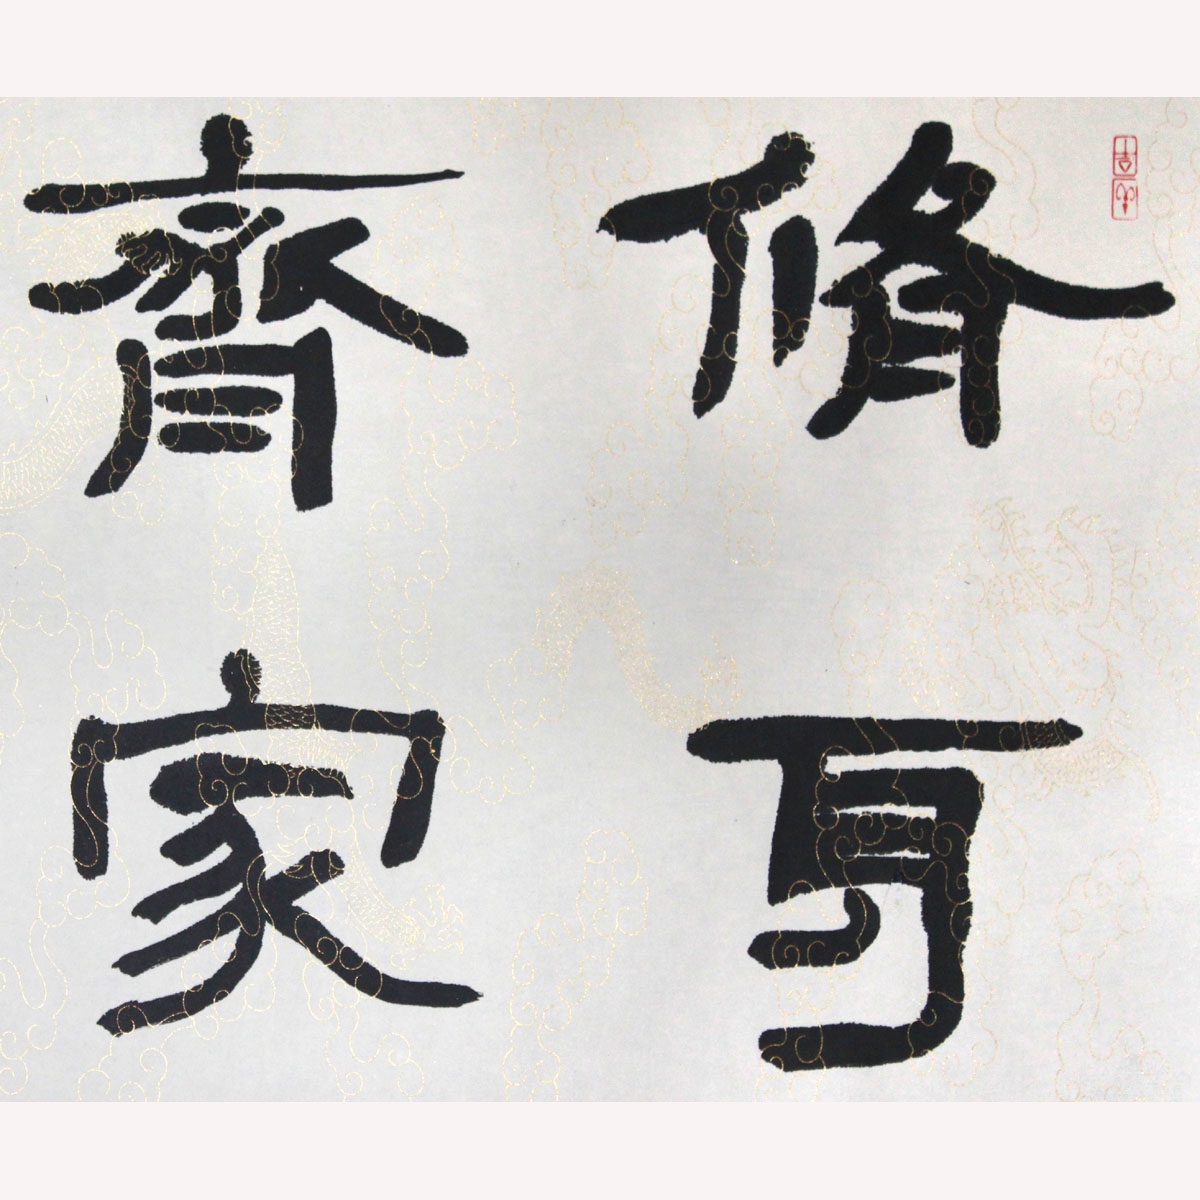 脩身
齊家